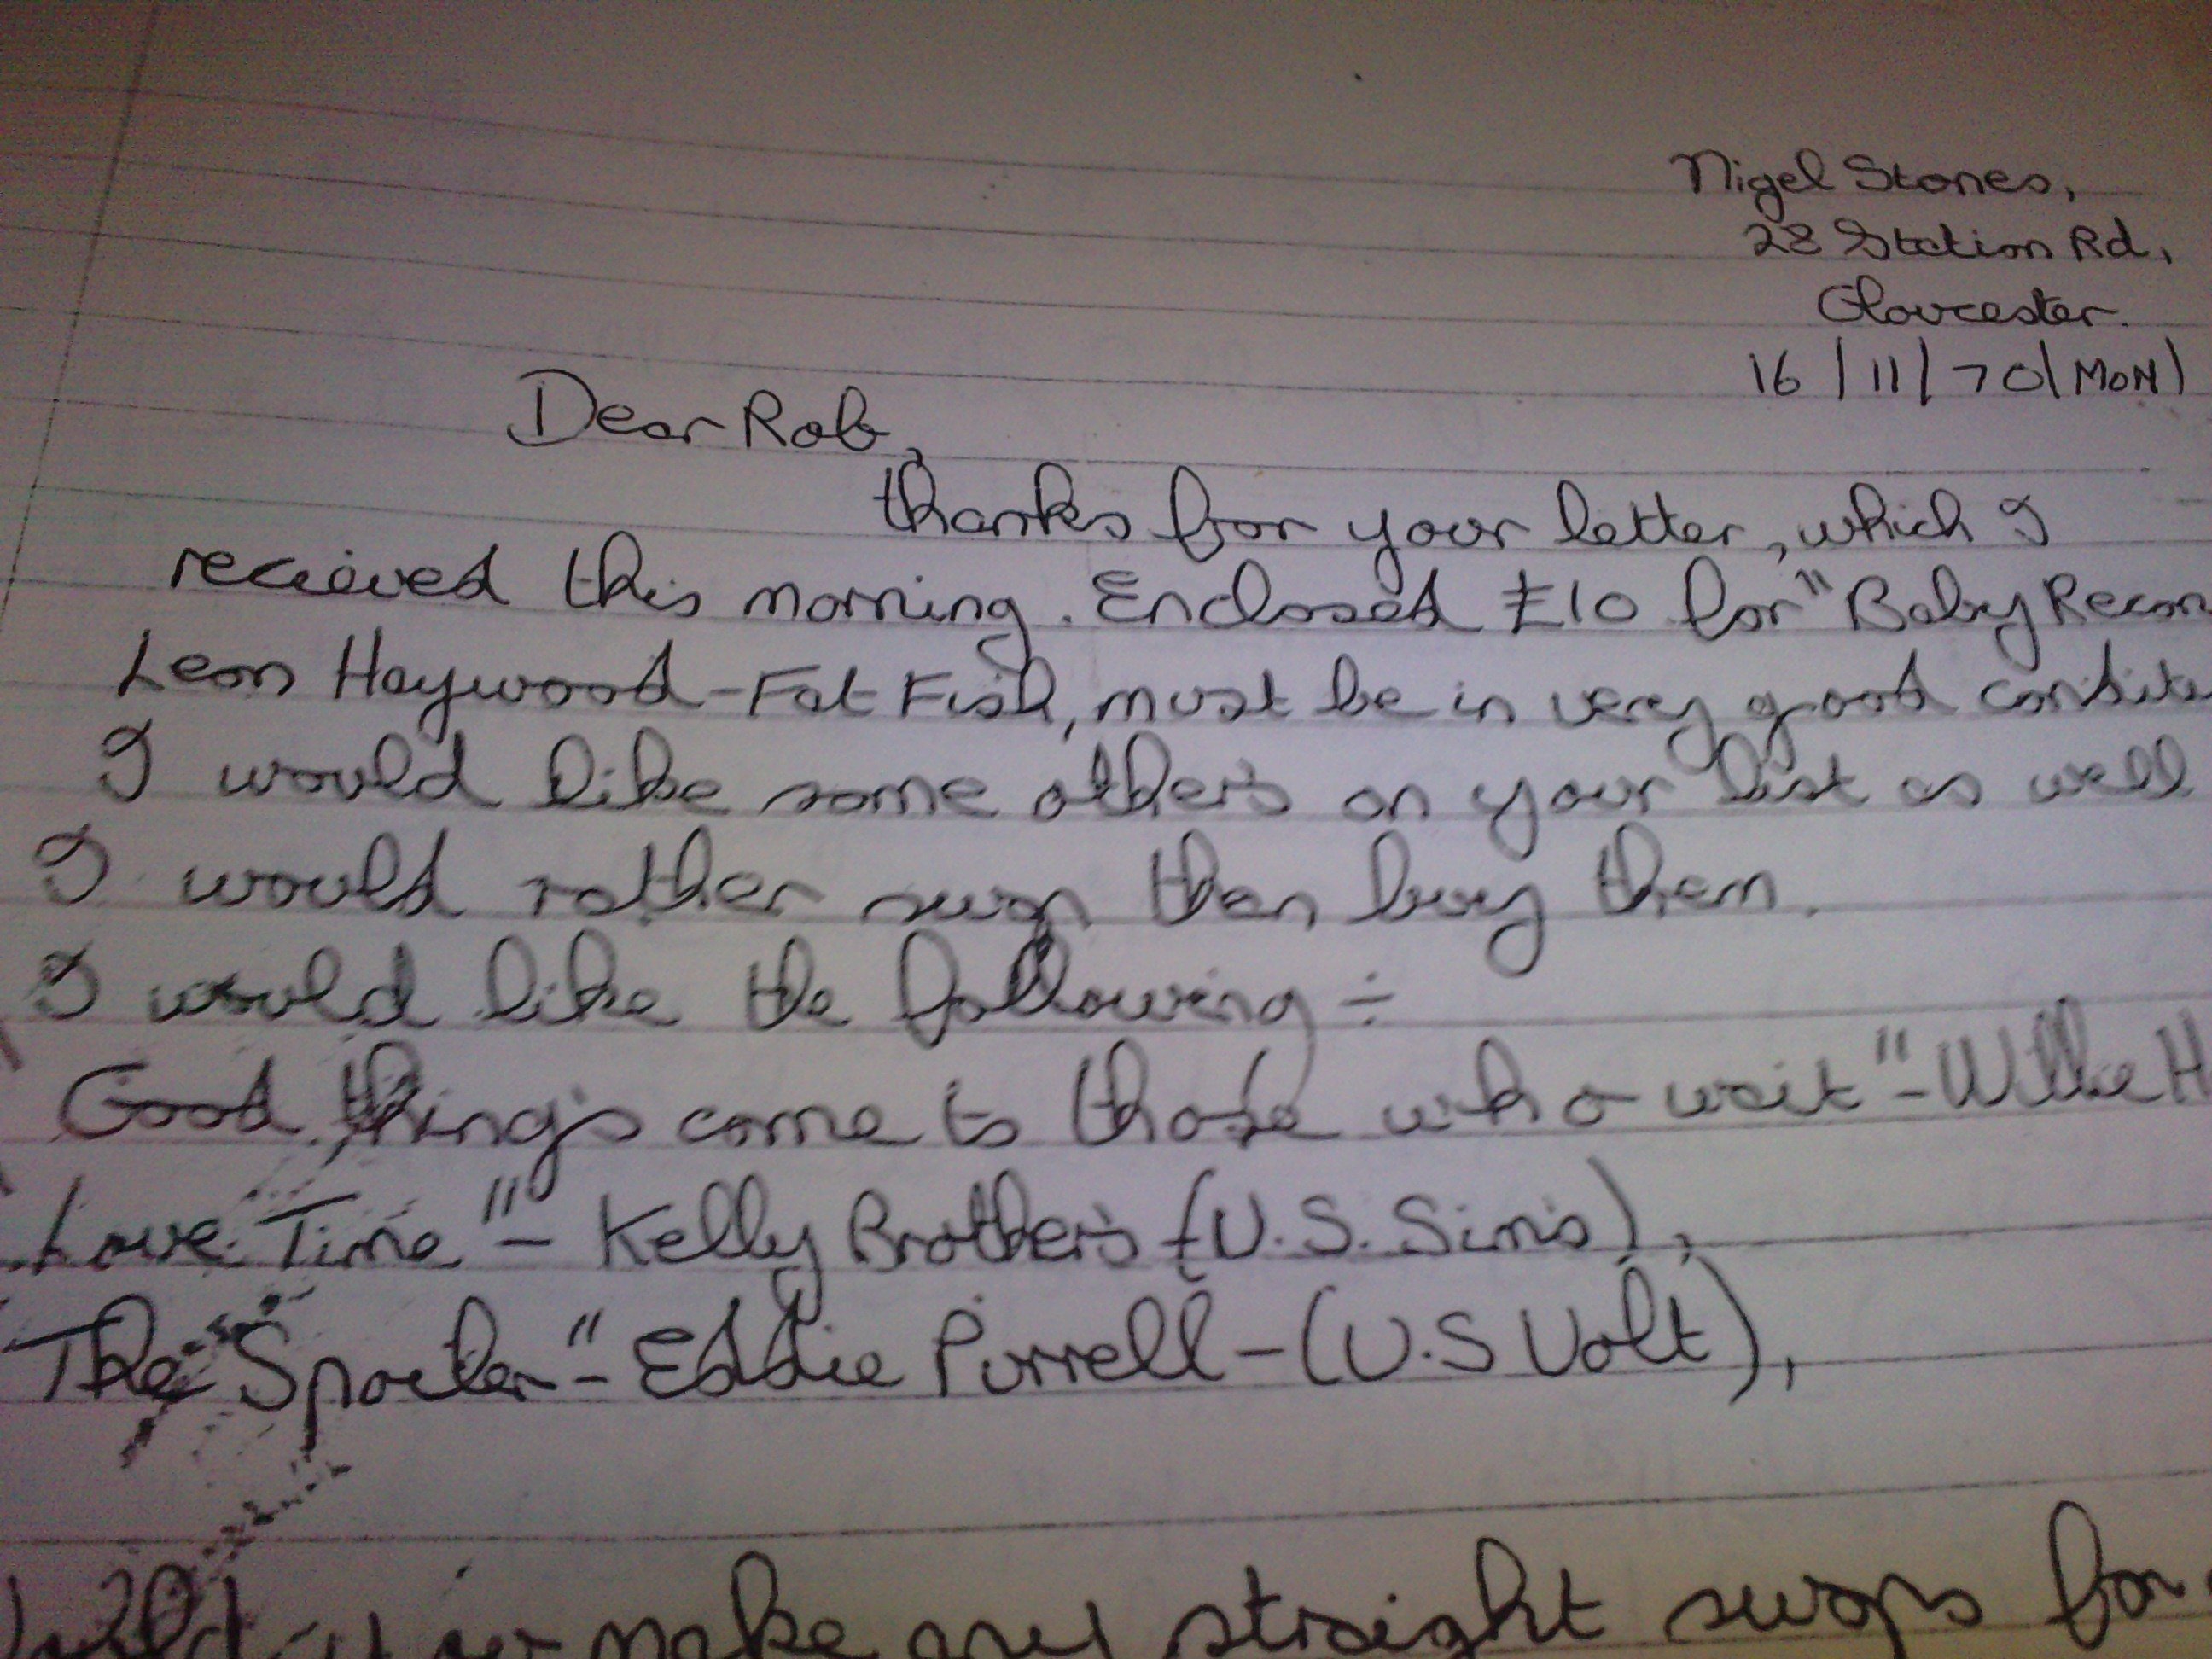 Nigel Stones,
28 Station Rd,
Gloucester.
16/11/70(MON)
Dear Rob,
thanks for your letter, which I
recieved this morning. Enclosed £10 for "Baby Recon
Leon Haywood-Fat Fish, must be in very good conditi
I would like some others on your list as well
I would rather swop then buy them.
I would like the following ÷
Good things come to those who wait" - Willie H
Love Time" - Kelly Brothers (U.S. Sims),
The Spoiler" - Eddie Purrell - (U.S Volt),
make any straight swops for